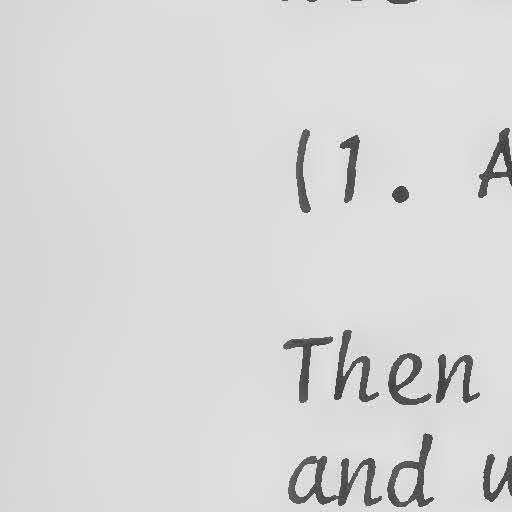 (1. A
Then
and